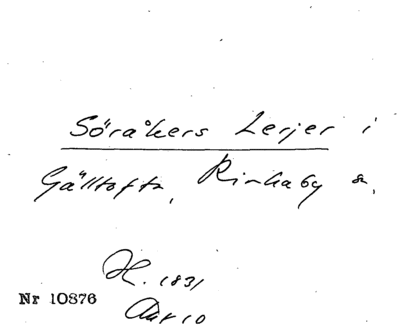 Söråkers Lerjer i
Gälltofta, Rinkaby sn,
H. 1831
Nr 10876
Akt 10